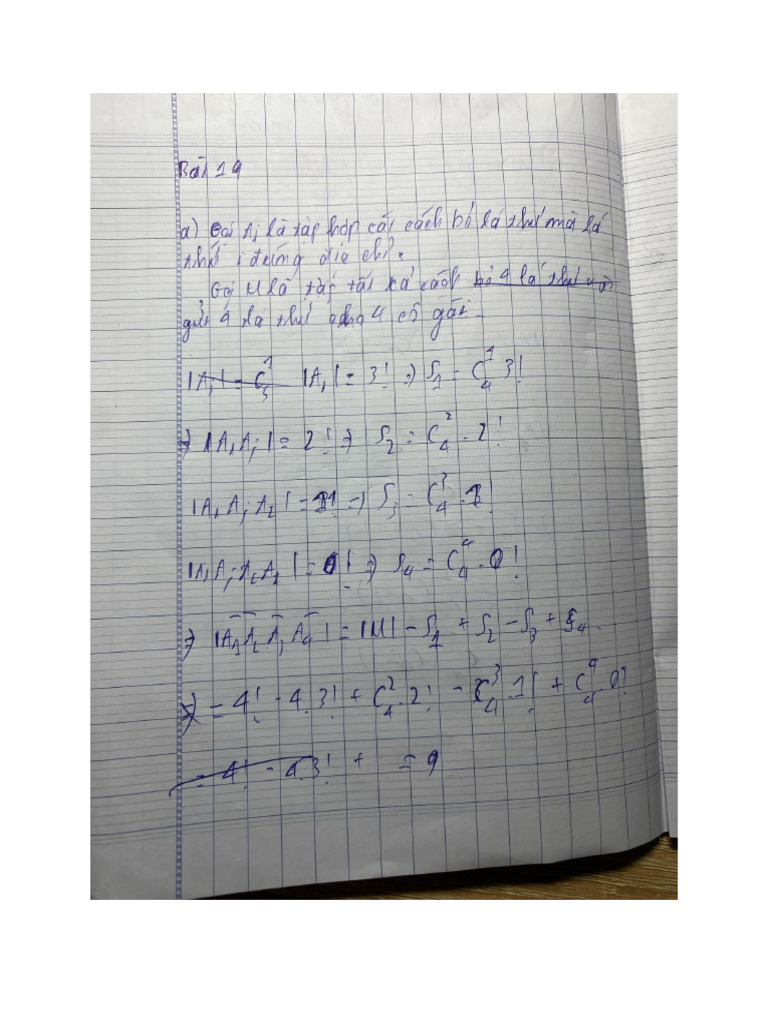 Bài 19
a) Gọi Ai là tập hợp các cách bỏ lá thư mà lá
thứ i đúng địa chỉ.
Gọi U là tập tất cả cách bỏ 4 lá thư
gửi 4 lá thư cho 4 cô gái.
|Ai| = C¹₃ |Ai| = 3! ⇒ S₁ = C¹₄ 3!
⇒ |AiAj| = 2! ⇒ S₂ = C²₄ . 2!
|AiAjAz| = 1! ⇒ S₃ = C³₄ . 1!
|AiAjAzAt| = 0! ⇒ S₄ = C⁴₄ . 0!
⇒ |A̅₁A̅₂A̅₃A̅₄| = |U| - S₁ + S₂ - S₃ + S₄.
= 4! - 4.3! + C²₄.2! - C³₄.1! + C⁴₄.0!
= 4! - 4.3! + = 9